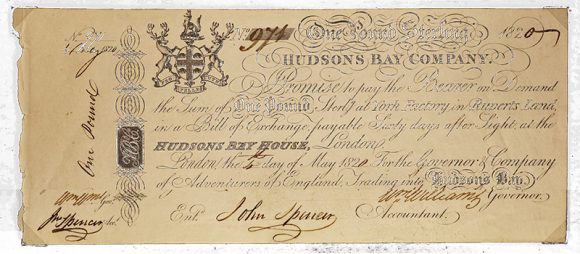 No 971 One Pound Sterling 1820
HUDSONS BAY COMPANY.
Promise to pay the Bearer on Demand
the Sum of One Pound Sterlg at York Factory in Ruperts Land
in a Bill of Exchange payable Sixty days after Sight, at the
HUDSONS BAY HOUSE, London.
London the day of May 1820 For the Governor & Company
of Adventurers of England, Trading into Hudsons Bay.
Wm Williams Governor.
Entd. John Spencer Accountant.
May 1820
One Pound
HBC
Wm Williams Gov.
Jno Spencer Acc.